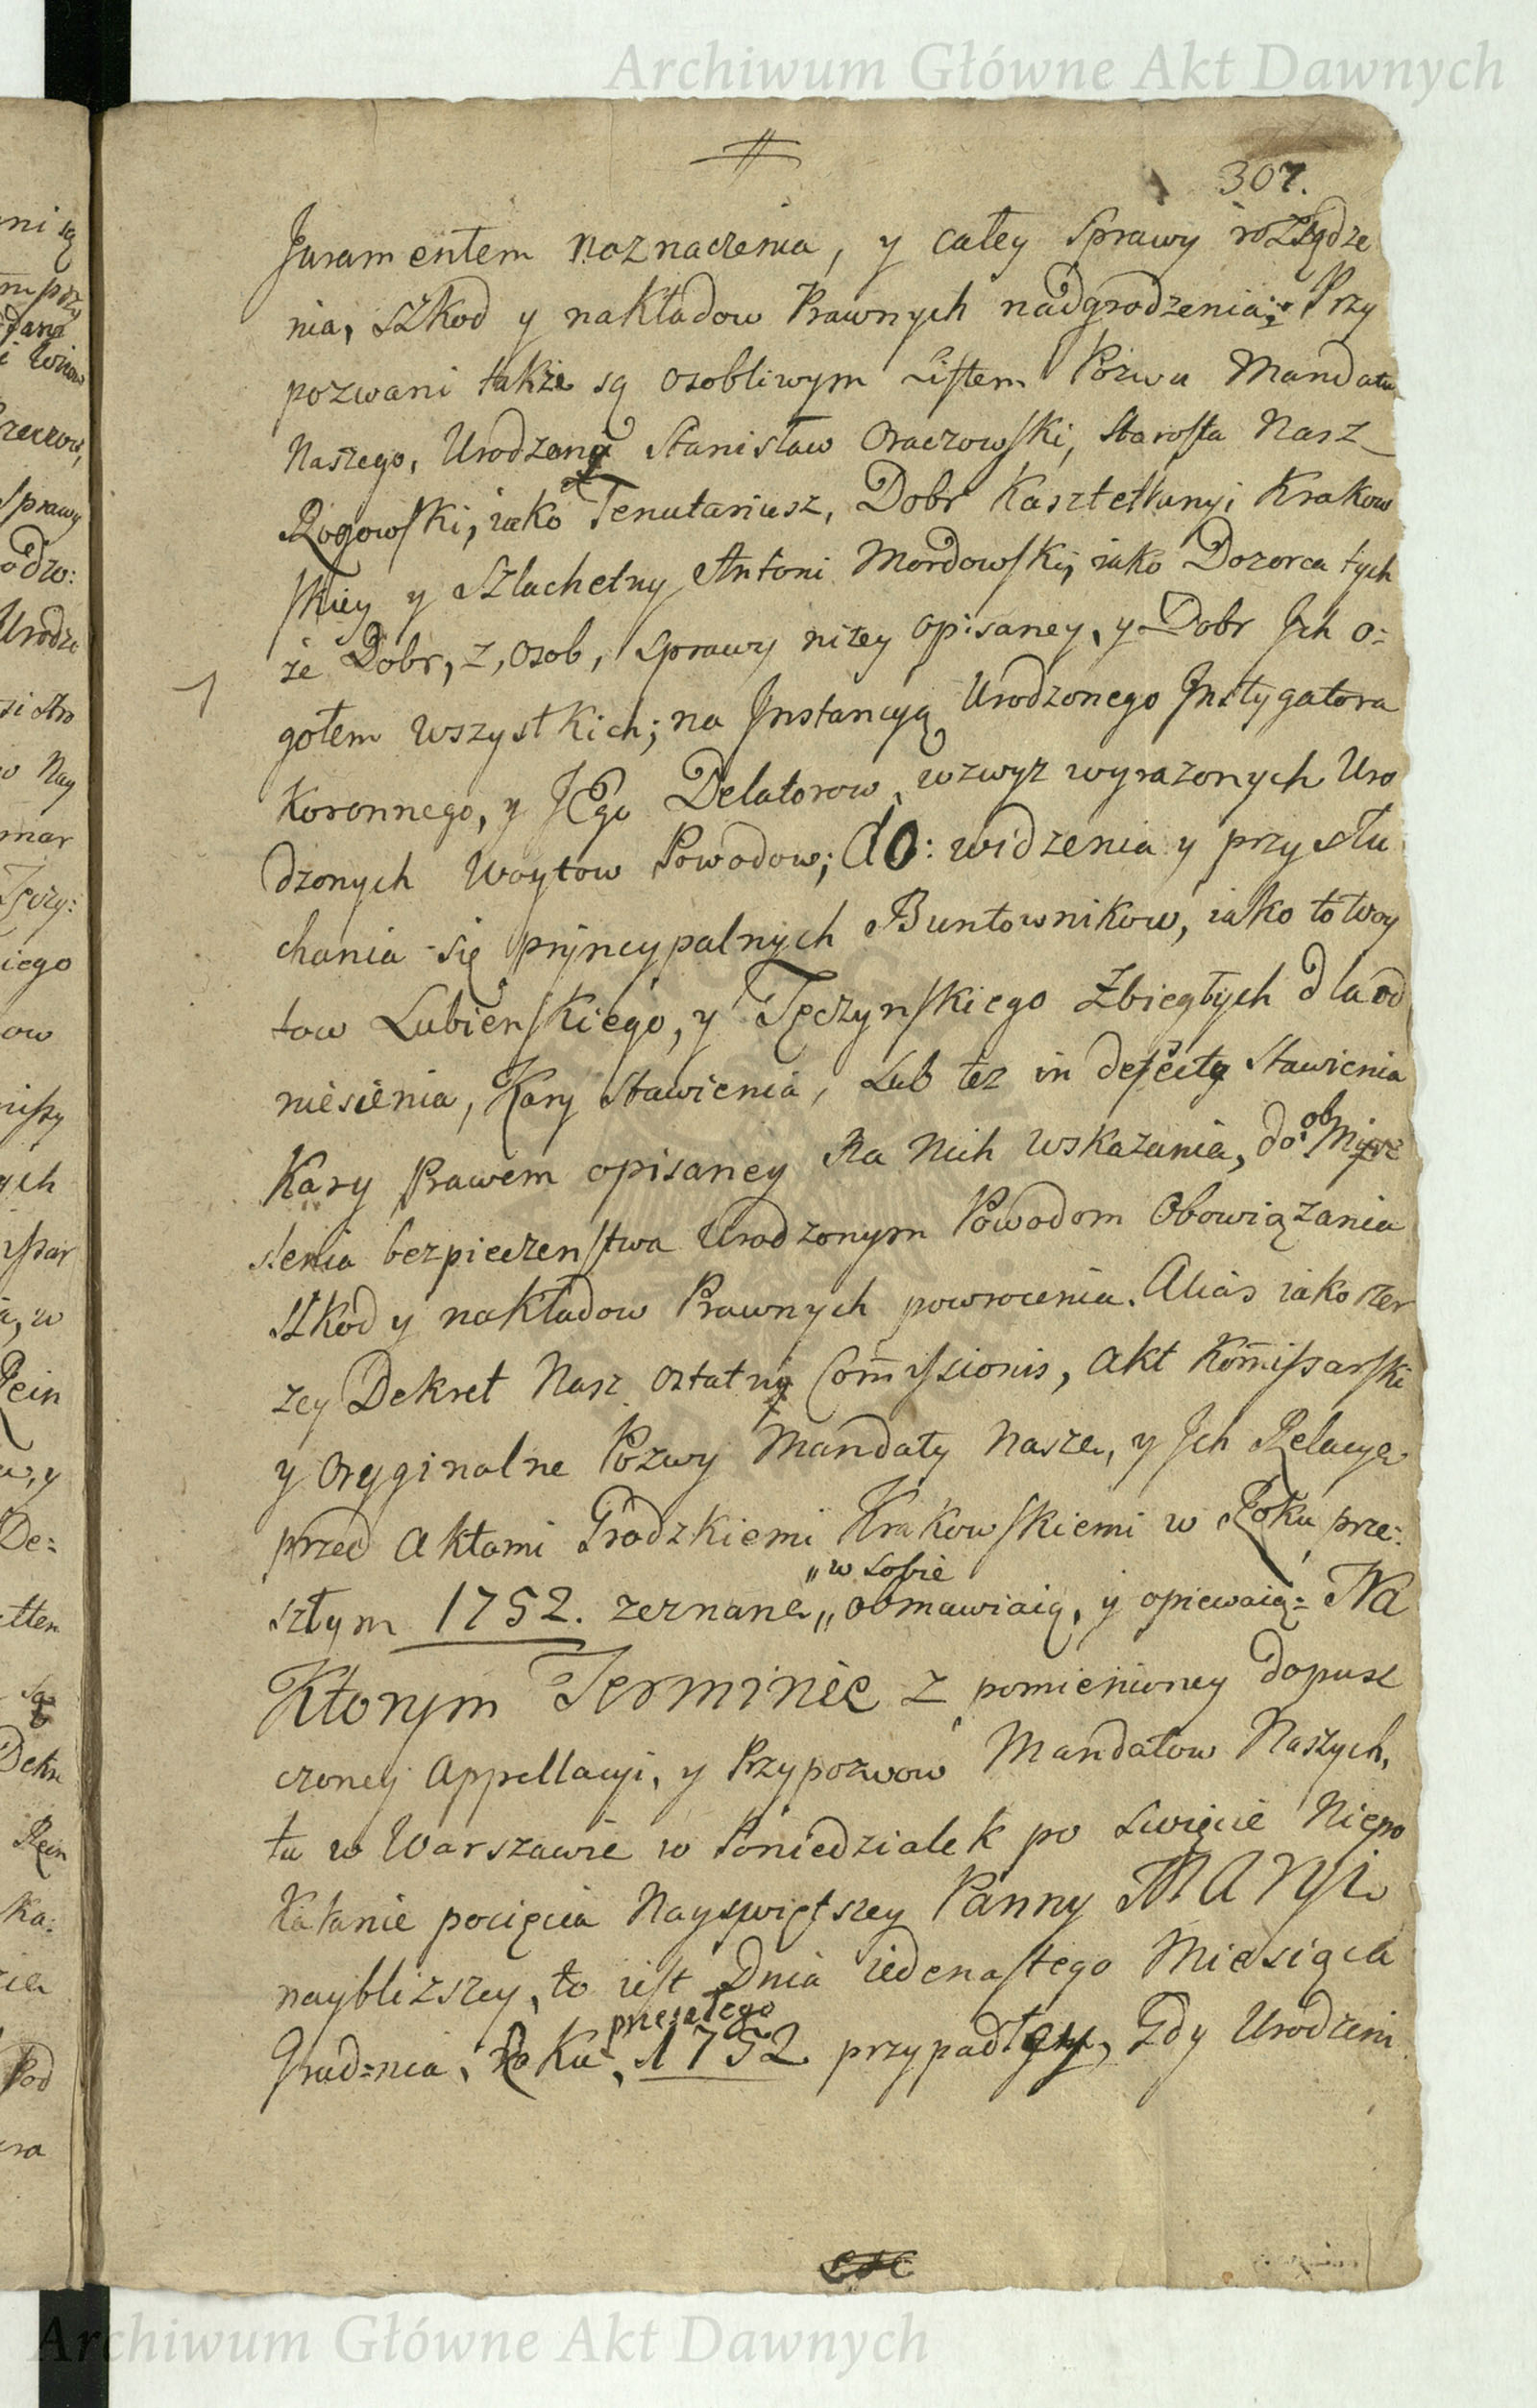 Archiwum Główne Akt Dawnych
307.
Juramentem naznaczenia, y całey sprawy rozsądze
nia, szkod y nakładow Prawnych nadgrodzenia: Przy
pozwani także są osobliwym Listem Pozwu Mandatu
Naszego, Urodzony Stanisław Oraczowski, Starosta Nasz
Rogowski, iako Tenutariusz, Dobr Kasztellanyi Krakow
skiey y Szlachetny Antoni Mordowski, iako Dozorca tych
że Dobr, z, osob, sprawy niżey opisaney, y Dobr Jch o=
gołem wszystkich; na Jnstancyą Urodzonego Jnstygatora
Koronnego, y JEgo Delatorow, wzwyż wyrażonych Uro
dzonych Woytow Powodow; do: widzenia y przysłu
chania się pryncypalnych Buntownikow, iako to Woy
tow Lubieńskiego, y Tęczynskiego Zbiegłych dla od
niesienia, Kary stawienia, Lub też in defectu stawienia
Kary Prawem opisaney Na Nich wskazania, do: ob Myśle
slenia bezpieczenstwa Urodzonym Powodom Obowiązania
szkod y nakładow Prawnych powrocenia. Alias iako szer
zey Dekret Nasz ostatny Com̄issionis, Akt Kom̄issarski
y Oryginalne Pozwy Mandaty Nasze, y Jch Relacye
przed Aktami Grodzkiemi Krakowskiemi w Roku prze=
szłym 1752. zeznane „w sobie„ obmawiaią, y opiewaią= Na
Ktorym Terminie z pomienioney dopusz
czoney Appellacyi, y Przypozwow Mandatow Naszych,
tu w Warszawie w Poniedziałek po Swięcie Niepo
kalanie poczęcia Nayswiętszey Panny MARYi
naybliższey, to iest Dnia iedenastego Miesiąca
Grud=nia, Roku przeszłego 1752 przypadłym, Gdy Urodzeni
Archiwum Główne Akt Dawnych